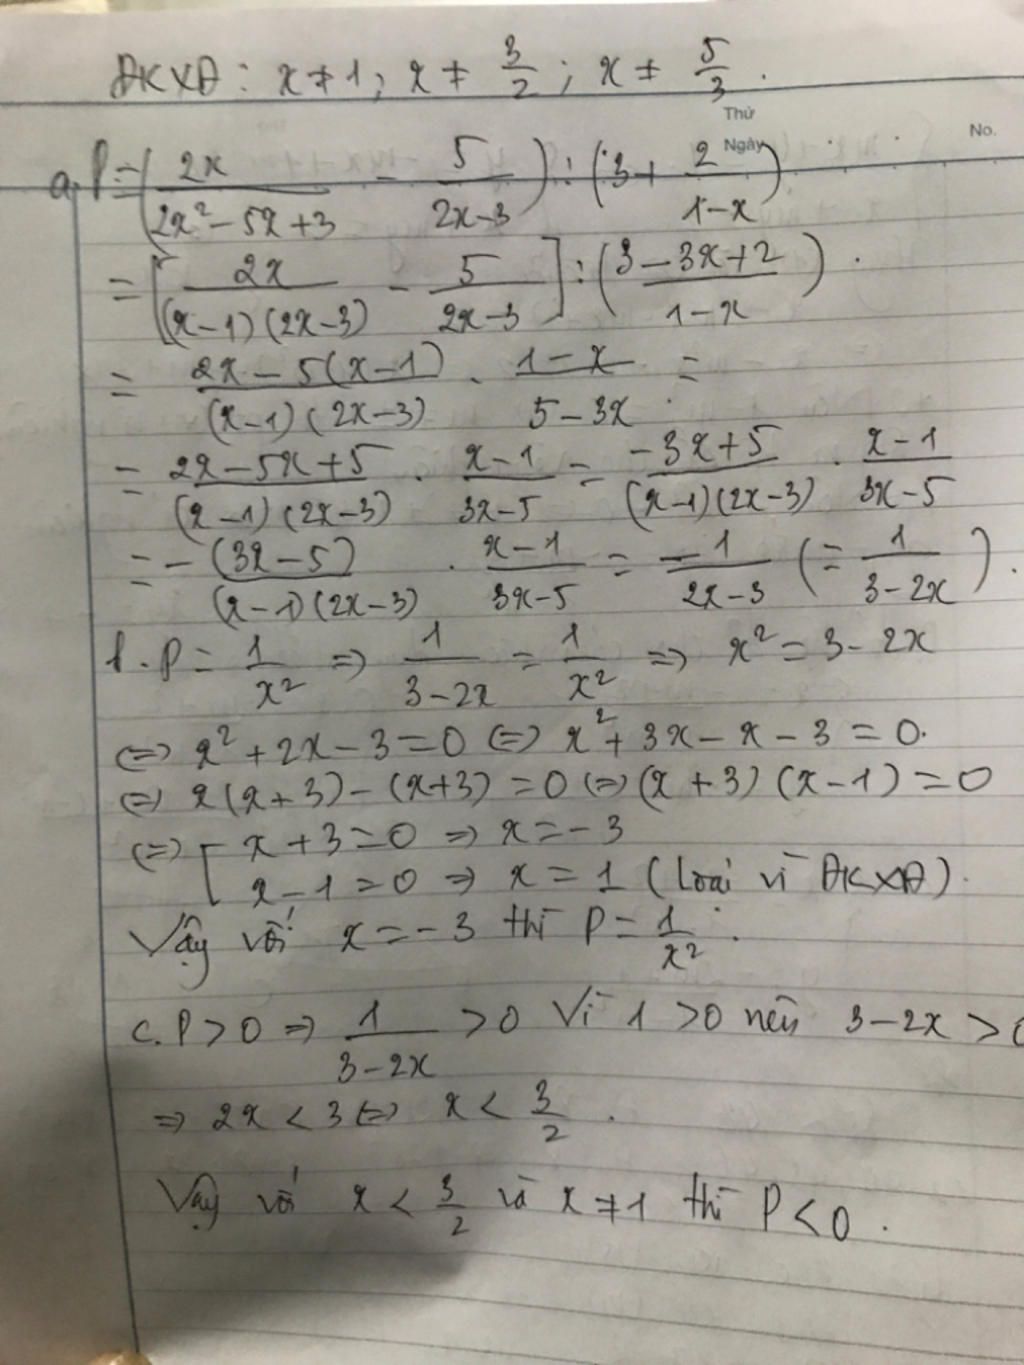 ĐKXĐ: x ≠ 1; x ≠ 3/2; x ≠ 5/3.
Thứ
Ngày
No.
a, P = (2x/(2x² - 5x + 3) - 5/(2x - 3)) : (3 + 2/(1 - x))
= [2x/((x - 1)(2x - 3)) - 5/(2x - 3)] : ((3 - 3x + 2)/(1 - x)).
= (2x - 5(x - 1))/((x - 1)(2x - 3)) . (1 - x)/(5 - 3x) =
= (2x - 5x + 5)/((x - 1)(2x - 3)) . (x - 1)/(3x - 5) = (-3x + 5)/((x - 1)(2x - 3)) . (x - 1)/(3x - 5)
= -(3x - 5)/((x - 1)(2x - 3)) . (x - 1)/(3x - 5) = -1/(2x - 3) (= 1/(3 - 2x)).
b. P = 1/x² => 1/(3 - 2x) = 1/x² => x² = 3 - 2x
<=> x² + 2x - 3 = 0 <=> x² + 3x - x - 3 = 0.
<=> x(x + 3) - (x + 3) = 0 <=> (x + 3)(x - 1) = 0
<=> [ x + 3 = 0 => x = -3
x - 1 = 0 => x = 1 (loại vì ĐKXĐ).
Vậy với x = -3 thì P = 1/x².
c. P > 0 => 1/(3 - 2x) > 0 Vì 1 > 0 nên 3 - 2x > 0
=> 2x < 3 <=> x < 3/2.
Vậy với x < 3/2 và x ≠ 1 thì P < 0.